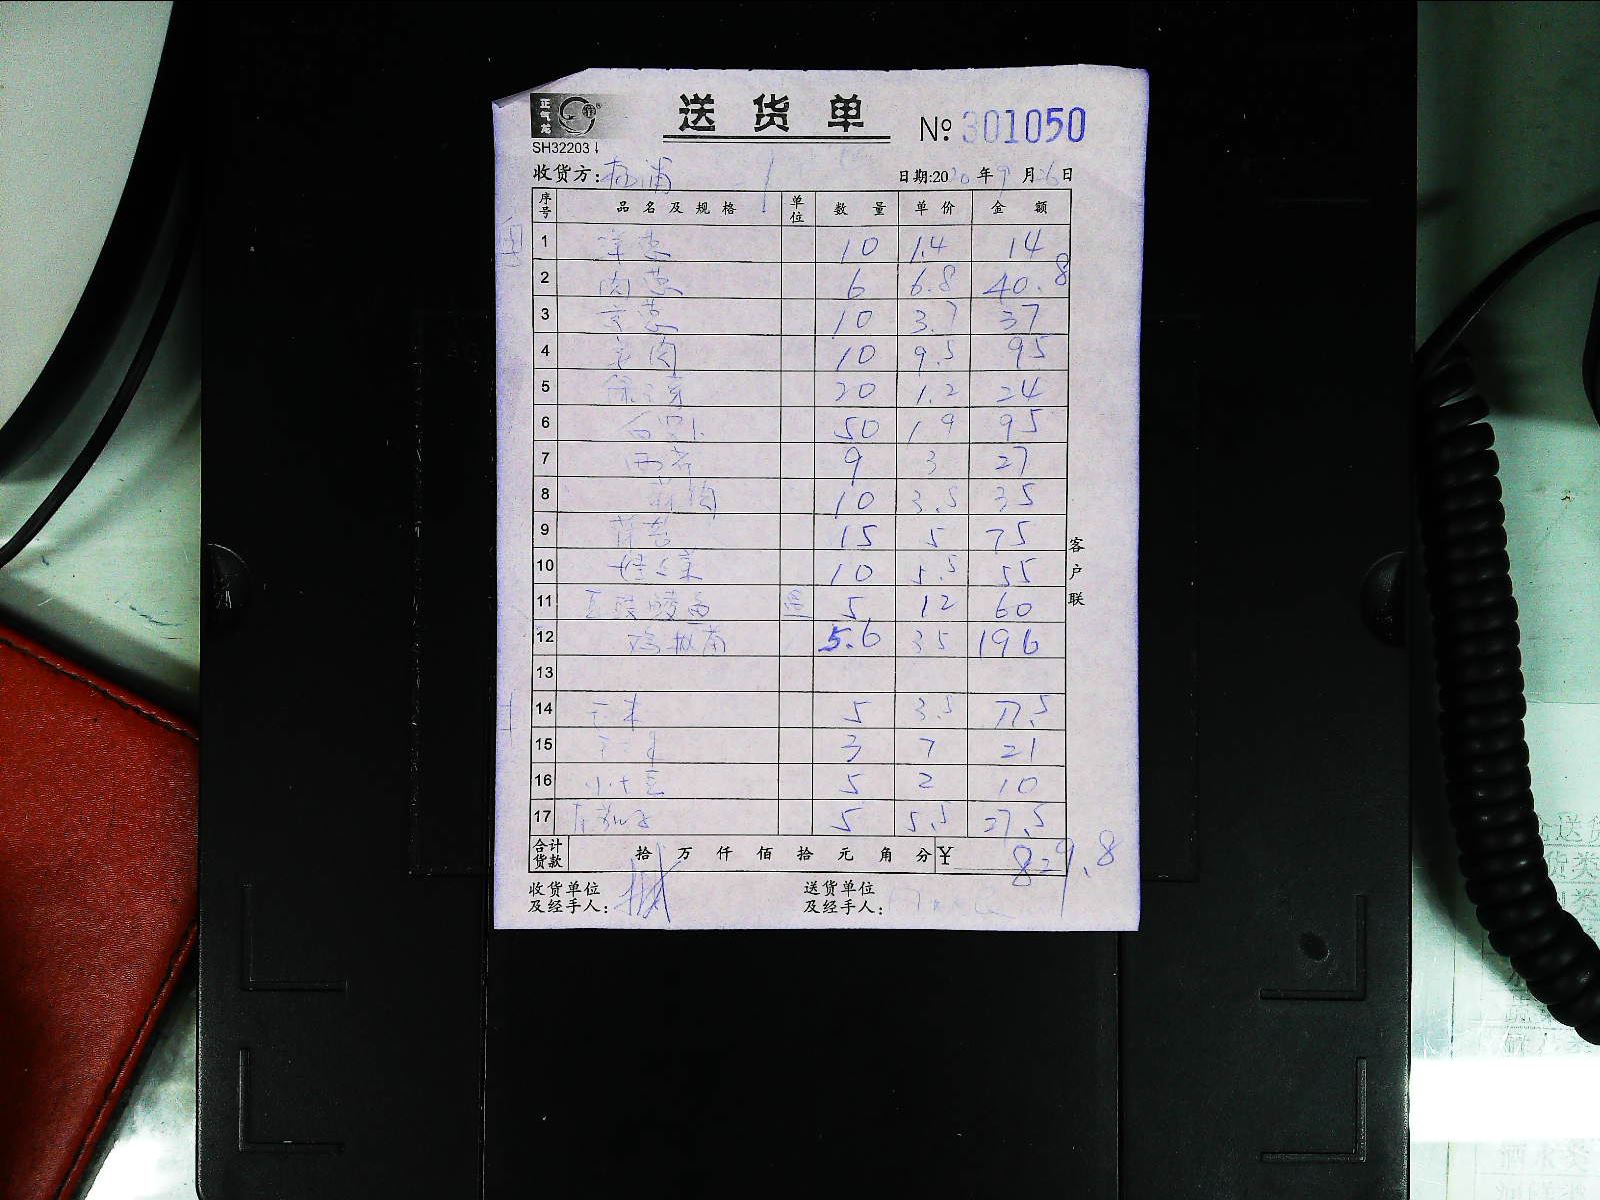 正气龙
送货单
№ 301050
SH32203
收货方: 杨浦 日期:2020年9月26日
序号 品名及规格 单位 数量 单价 金额
1 洋葱 10 1.4 14
2 肉葱 6 6.8 40.8
3 京葱 10 3.7 37
4 10 9.5 95
5 20 1.2 24
6 白罗卜 50 1.9 95
7 西芹 9 3 27
8 10 3.5 35
9 15 5 75
10 娃娃菜 10 5.5 55
11 豆豉鲮鱼 5 12 60
12 鸡枞菌 5.6 35 196
13
14 玉米 5 3.5 17.5
15 3 7 21
16 小土豆 5 2 10
17 5 5.5 27.5
合计货款 拾 万 仟 佰 拾 元 角 分 ¥ 829.8
收货单位及经手人: 送货单位及经手人:
客户联